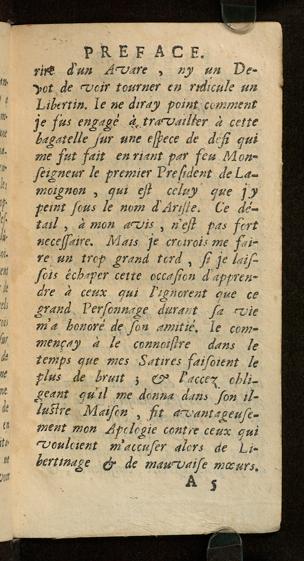 PREFACE.
rire d'un Avare, ny un De-
vot de voir tourner en ridicule un
Libertin. Ie ne diray point comment
je fus engagé à travailler à cette
bagatelle sur une espece de défi qui
me fut fait en riant par feu Mon-
seigneur le premier President de La-
moignon, qui est celuy que j'y
peint sous le nom d'Ariste. Ce dé-
tail, à mon avis, n'est pas fort
necessaire. Mais je croirois me fai-
re un trop grand tord, si je lais-
sois échaper cette occasion d'appren-
dre à ceux qui l'ignorent que ce
grand Personnage durant sa vie
m'a honoré de son amitié. Ie com-
mençay à le connoistre dans le
temps que mes Satires faisoient le
plus de bruit; & l'accez obli-
geant qu'il me donna dans son il-
lustre Maison, fit avantageuse-
ment mon Apologie contre ceux qui
vouloient m'accuser alors de Li-
bertinage & de mauvaise mœurs.
A 5